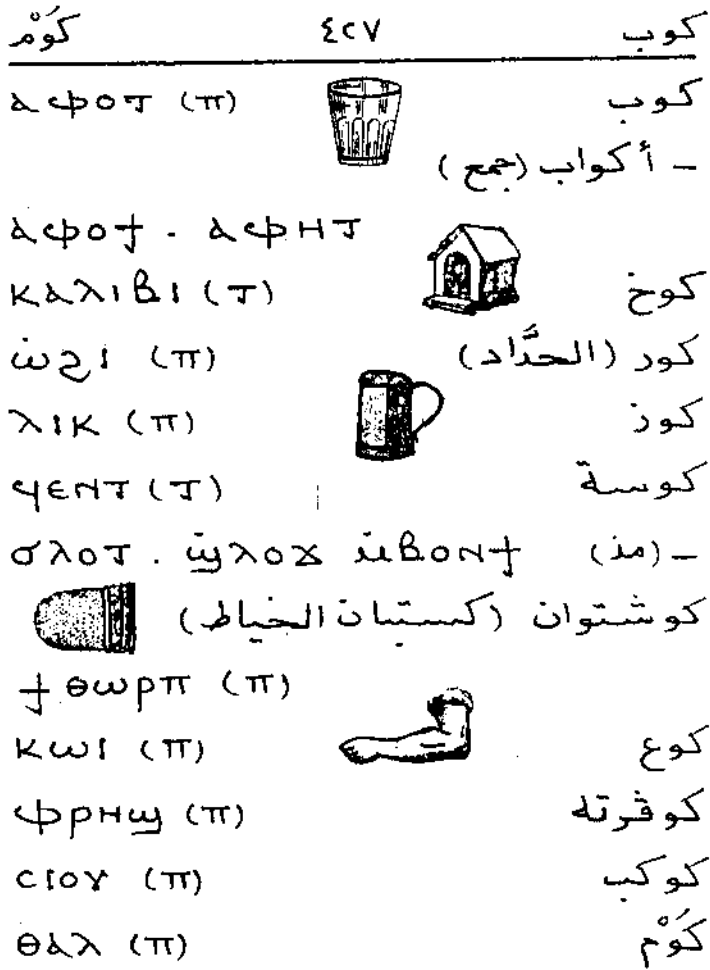 كوب ٤٢٧ كَوْم
كوب ⲁⲫⲟⲧ (ⲡ)
– أكواب (جمع)
ⲁⲫⲟϯ . ⲁⲫⲏⲧ
كوخ ⲕⲁⲗⲓⲃⲓ (ⲧ)
كور (الحدَّاد) ⲱ̇ϩⲓ (ⲡ)
كوز ⲗⲓⲕ (ⲡ)
كوسة ϥⲉⲛⲧ (ⲧ)
– (مذ) ϭⲗⲟⲧ . ϣ̇ⲗⲟϫ ⲙ̇ⲃⲟⲛϯ
كوشتوان (كستبان الخياط)
ϯⲑⲱⲣⲡ (ⲡ)
كوع ⲕⲱⲓ (ⲡ)
كوڤرته ⲫⲣⲏϣ (ⲡ)
كوكب ⲥⲓⲟⲩ (ⲡ)
كَوْم ⲑⲁⲗ (ⲡ)